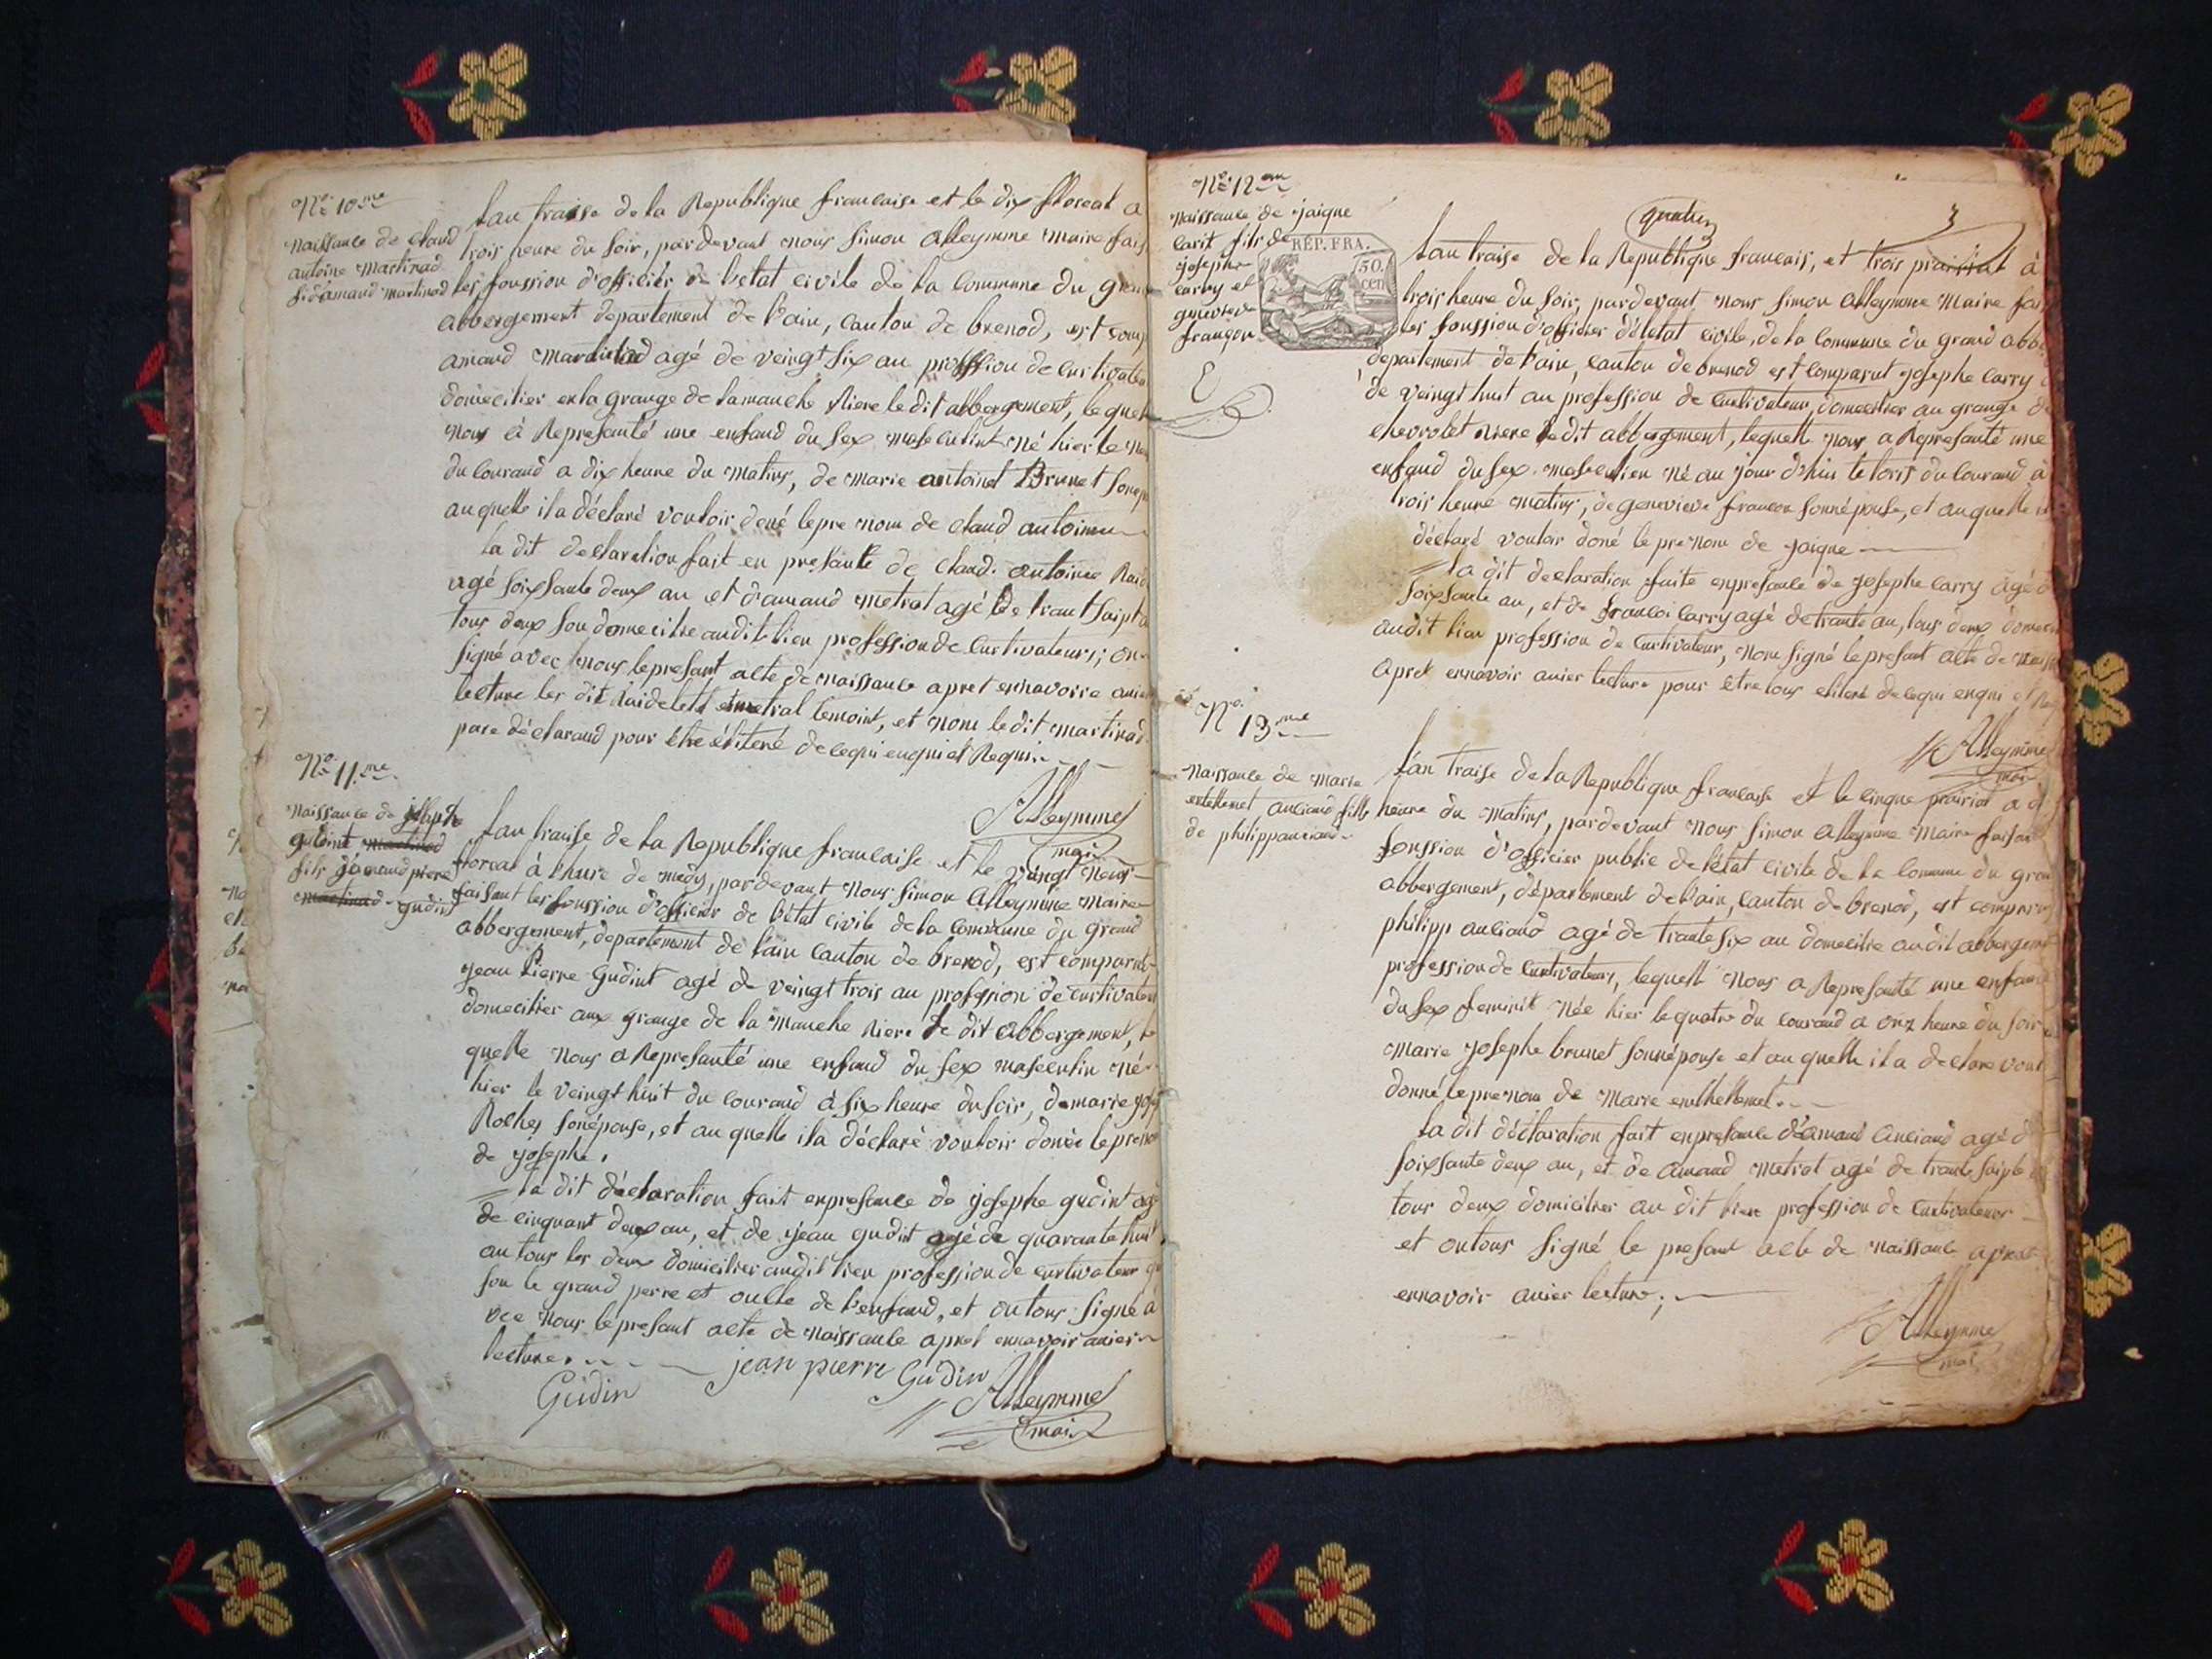 N.o 10.me
Naissance de claud
antoine Martinod
fils d'amand martinod
Lan traise de la Republique francaise et le dix floreal a
trois heure du soir, pardevant nous simon alleymme maire fais
les foussion d'officier de l'etat civile de la Commune du gran
abbergement departement de l'ain, canton de brenod, est comp
amand Martinod agé de veingt six an profession de curtivate
domecilier en la grange de lamanche Riere le dit abbergement, le quel
nous à Represanté une enfand du sex masculint né hier le ne
du courand a dix heure du matins, de marie antoinet Brunet son
auquelle il a déclaré vouloir doné lepre nom de claud antoine
la dit declaration fait en presante de claud antoine
agé soixsante deux an et d'amand metrat agé de trant saipt a
tous deux son domecilie audit lieu profession de curtivateurs; on
signé avec nous lepresant acte de naissance apret ennavoire
lecture les dit et metral temoint, et nom ledit martinod
pare déclarand pour être élitere de lequi enqui et Requi
Alleymme
mai
N.o 11.me
Naissance de josephe
gudint martinod
fils d'amand piere
martinod gudint
Lan traise de la Republique francaise et le veingt neuf
floreal à l'hure de medy, pardevant nous simon alleymme maire
faisant les foussion d'officier de l'état civile de la commune du grand
abbergement, departement de l'ain canton de brenod, est comparut
jean Pierre Gudint agé de veingt trois an profession de curtivateur
domecilier aux grange de la manche Riere le dit abbergement, le
quelle nous a Represanté une enfand du sex masculin né
hier le veingt huit du courand à six heure du soir, de marie jose
Rolhes sonéponse, et auquelle ila déclaré vouloir donér le preno
de josephe.
la dit déclaration fait enpresance de josephe gudint agé
de cinquant deux an, et de jean gudint agé de quarante huit
an tous les deux domicilier audit lieu profession de curtivateur q
son le grand perre et oncle de l'enfand, et ontous signé a
vec nous lepresant acte de naissance apret ennavoir
lecture.
jean pierre Gudin
Gudin
Alleymme
mai
N.o 12.me
Naissance de jaique
carit fils de
josephe
carry et
genevieve
françon
RÉP. FRA.
50.
cen
3
Lan traise de la Republique francais, et trois prairial à
trois heure du soir, pardevant nous simon alleymme maire fai
les foussion d'officier de létat civile, de la Commune du grand abbe
departement de l'ain, canton de brenod est comparut josephe carry
de veingt huit an profession de curtivateur, domecilier au grange de
chevrolet Riere le dit abbergement, lequell nous a Represanté une
enfand du sex masculien né au jour d'hui le toris du courand à
trois heure matins, de genevieve francon sonnéponse, et auquelle il
déclaré vouloir doné le prenom de jaique
la dit declaration faite enpresance de josephe carry agé d
soixsante an, et de francoi carry agé detrante an, tous deux domeci
audit lieu profession de curtivateur, nom signé lepresant acte de naiss
Apret ennavoir lecture pour être tous eliteré de lequi enqui et Req
Alleymme
mai
N.o 13.me
Naissance de marie
anciand fille
de philipp anciand
Lan traise de la Republique francaise et le cinque prairial a d
heure du matins, pardevant nous simon alleymme maire faisant
foussion d'officier public de létat civile de la Commune du gran
abbergement, département de l'ain, canton de brenod, est comparu
philipp anciand agé de trante six an domecilie au dit abbergement
profession de Curtivateur, lequell nous a Represanté une enfand
du sex feminit née hier le quatre du courand a onz heure du soir
marie josephe brunet sonnéponse et au quelle il a declare voul
donné le pre nom de marie
La dit déclaration fait enpresance d'amand anciand agé d
soixsante deux an, et de amand metrat agé de trante saipt a
tous deux domicilier au dit lieu profession de curtivateurs
et ontous signé le presand acte de naissance apret
ennavoir lecture;
Alleymme
mai